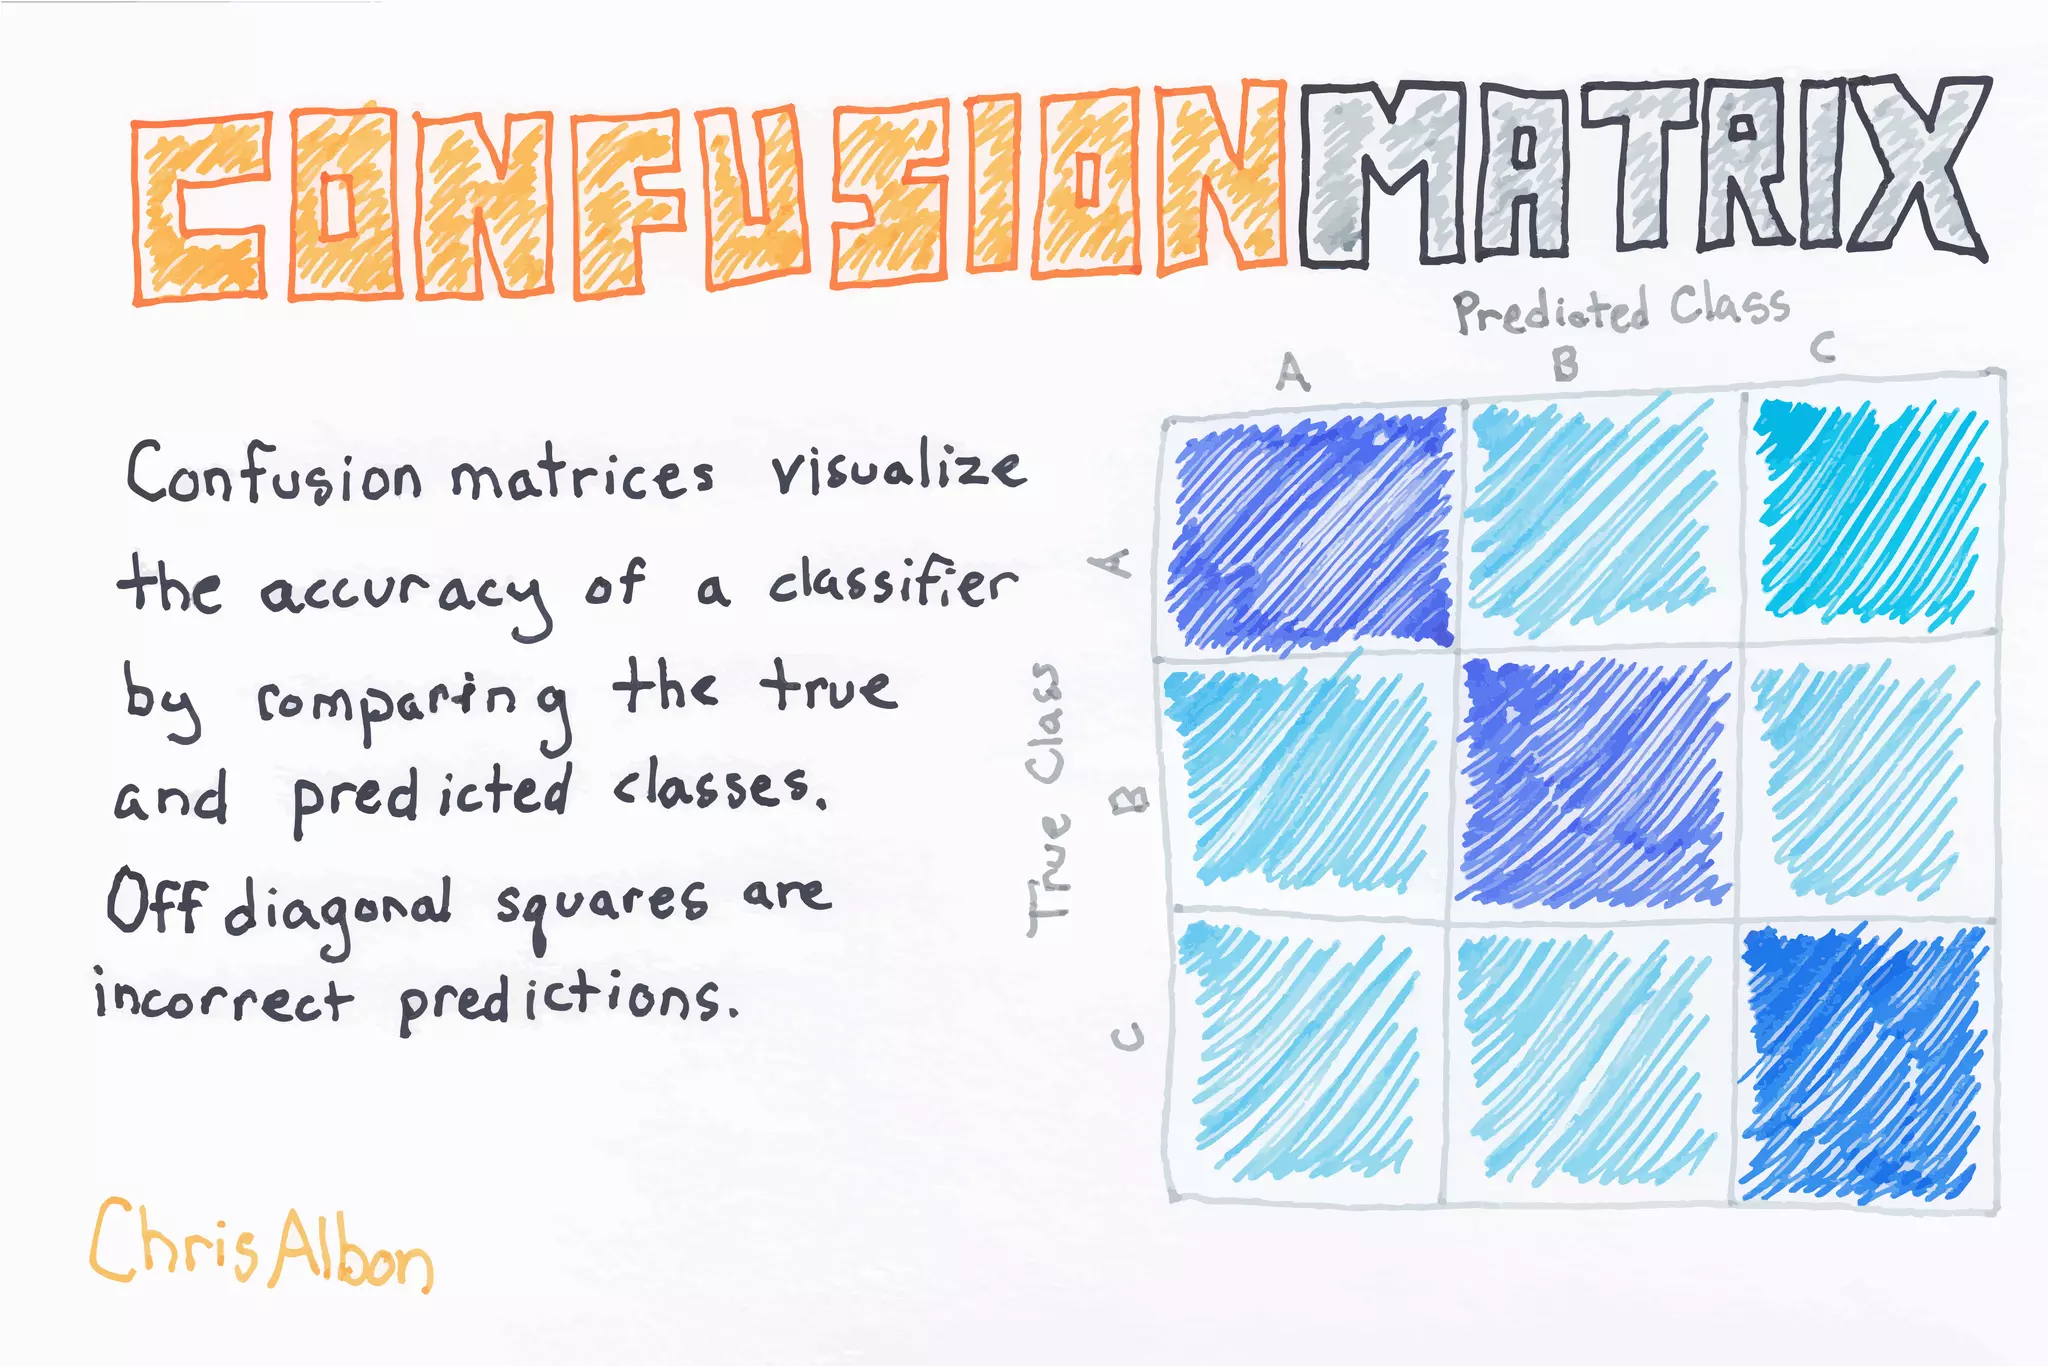 CONFUSION MATRIX
Predicted Class
A B C
Confusion matrices visualize
the accuracy of a classifier
by comparing the true
and predicted classes.
Off diagonal squares are
incorrect predictions.
True Class
A
B
C
Chris Albon